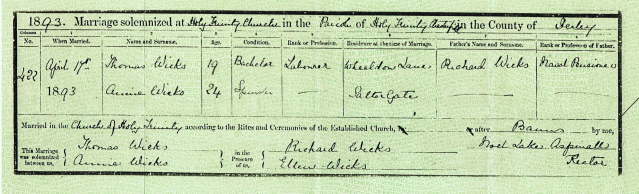 1893. Marriage solemnized at Holy Trinity Church in the Parish of Holy Trinity in the County of Derby
Columns 1 2 3 4 5 6 7 8
No. When Married. Name and Surname. Age. Condition. Rank or Profession. Residence at the time of Marriage. Father's Name and Surname. Rank or Profession of Father.
422 April 17th Thomas Wicks 19 Bachelor Labourer Wheeldon Lane Richard Wicks Naval Pensioner
1893 Annie Wicks 24 Spinster — Salter Gate — —
Married in the Church of Holy Trinity according to the Rites and Ceremonies of the Established Church, by after Banns by me,
This Marriage was solemnized between us, Thomas Wicks Annie Wicks in the Presence of us, Richard Wicks Ellen Wicks Noel Lake Aspinall
Rector